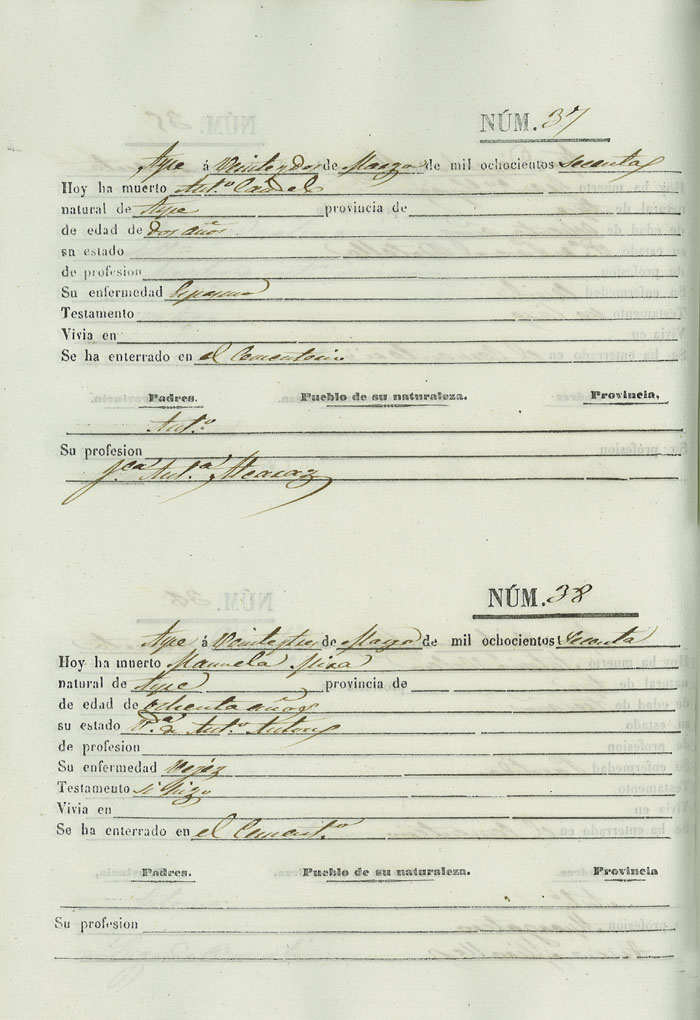 NÚM. 37
Aspe á Veinte y dos de Marzo de mil ochocientos sesenta
Hoy ha muerto Ant.º
natural de Aspe provincia de
de edad de Dos años
su estado
de profesion
Su enfermedad
Testamento
Vivia en
Se ha enterrado en el Cementerio
Padres. Pueblo de su naturaleza. Provincia,
Ant.º
Su profesion
Ant.ª Alcaraz
NÚM. 38
Aspe á Veinte y tres de Marzo de mil ochocientos sesenta
Hoy ha muerto Manuela Mira
natural de Aspe provincia de
de edad de ochenta años
su estado V.ª de Ant.º Anton
de profesion
Su enfermedad Vejez
Testamento si hizo
Vivia en
Se ha enterrado en el Cement.º
Padres. Pueblo de su naturaleza. Provincia
Su profesion